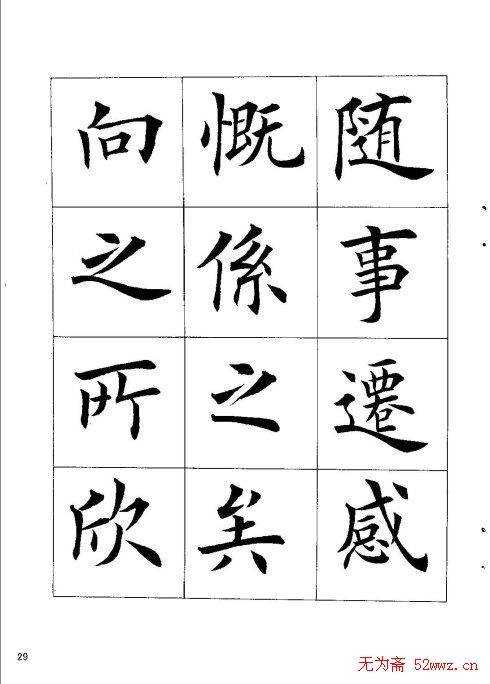 随事遷感
慨係之矣
向之所欣
29
无为斋 52wwz.cn